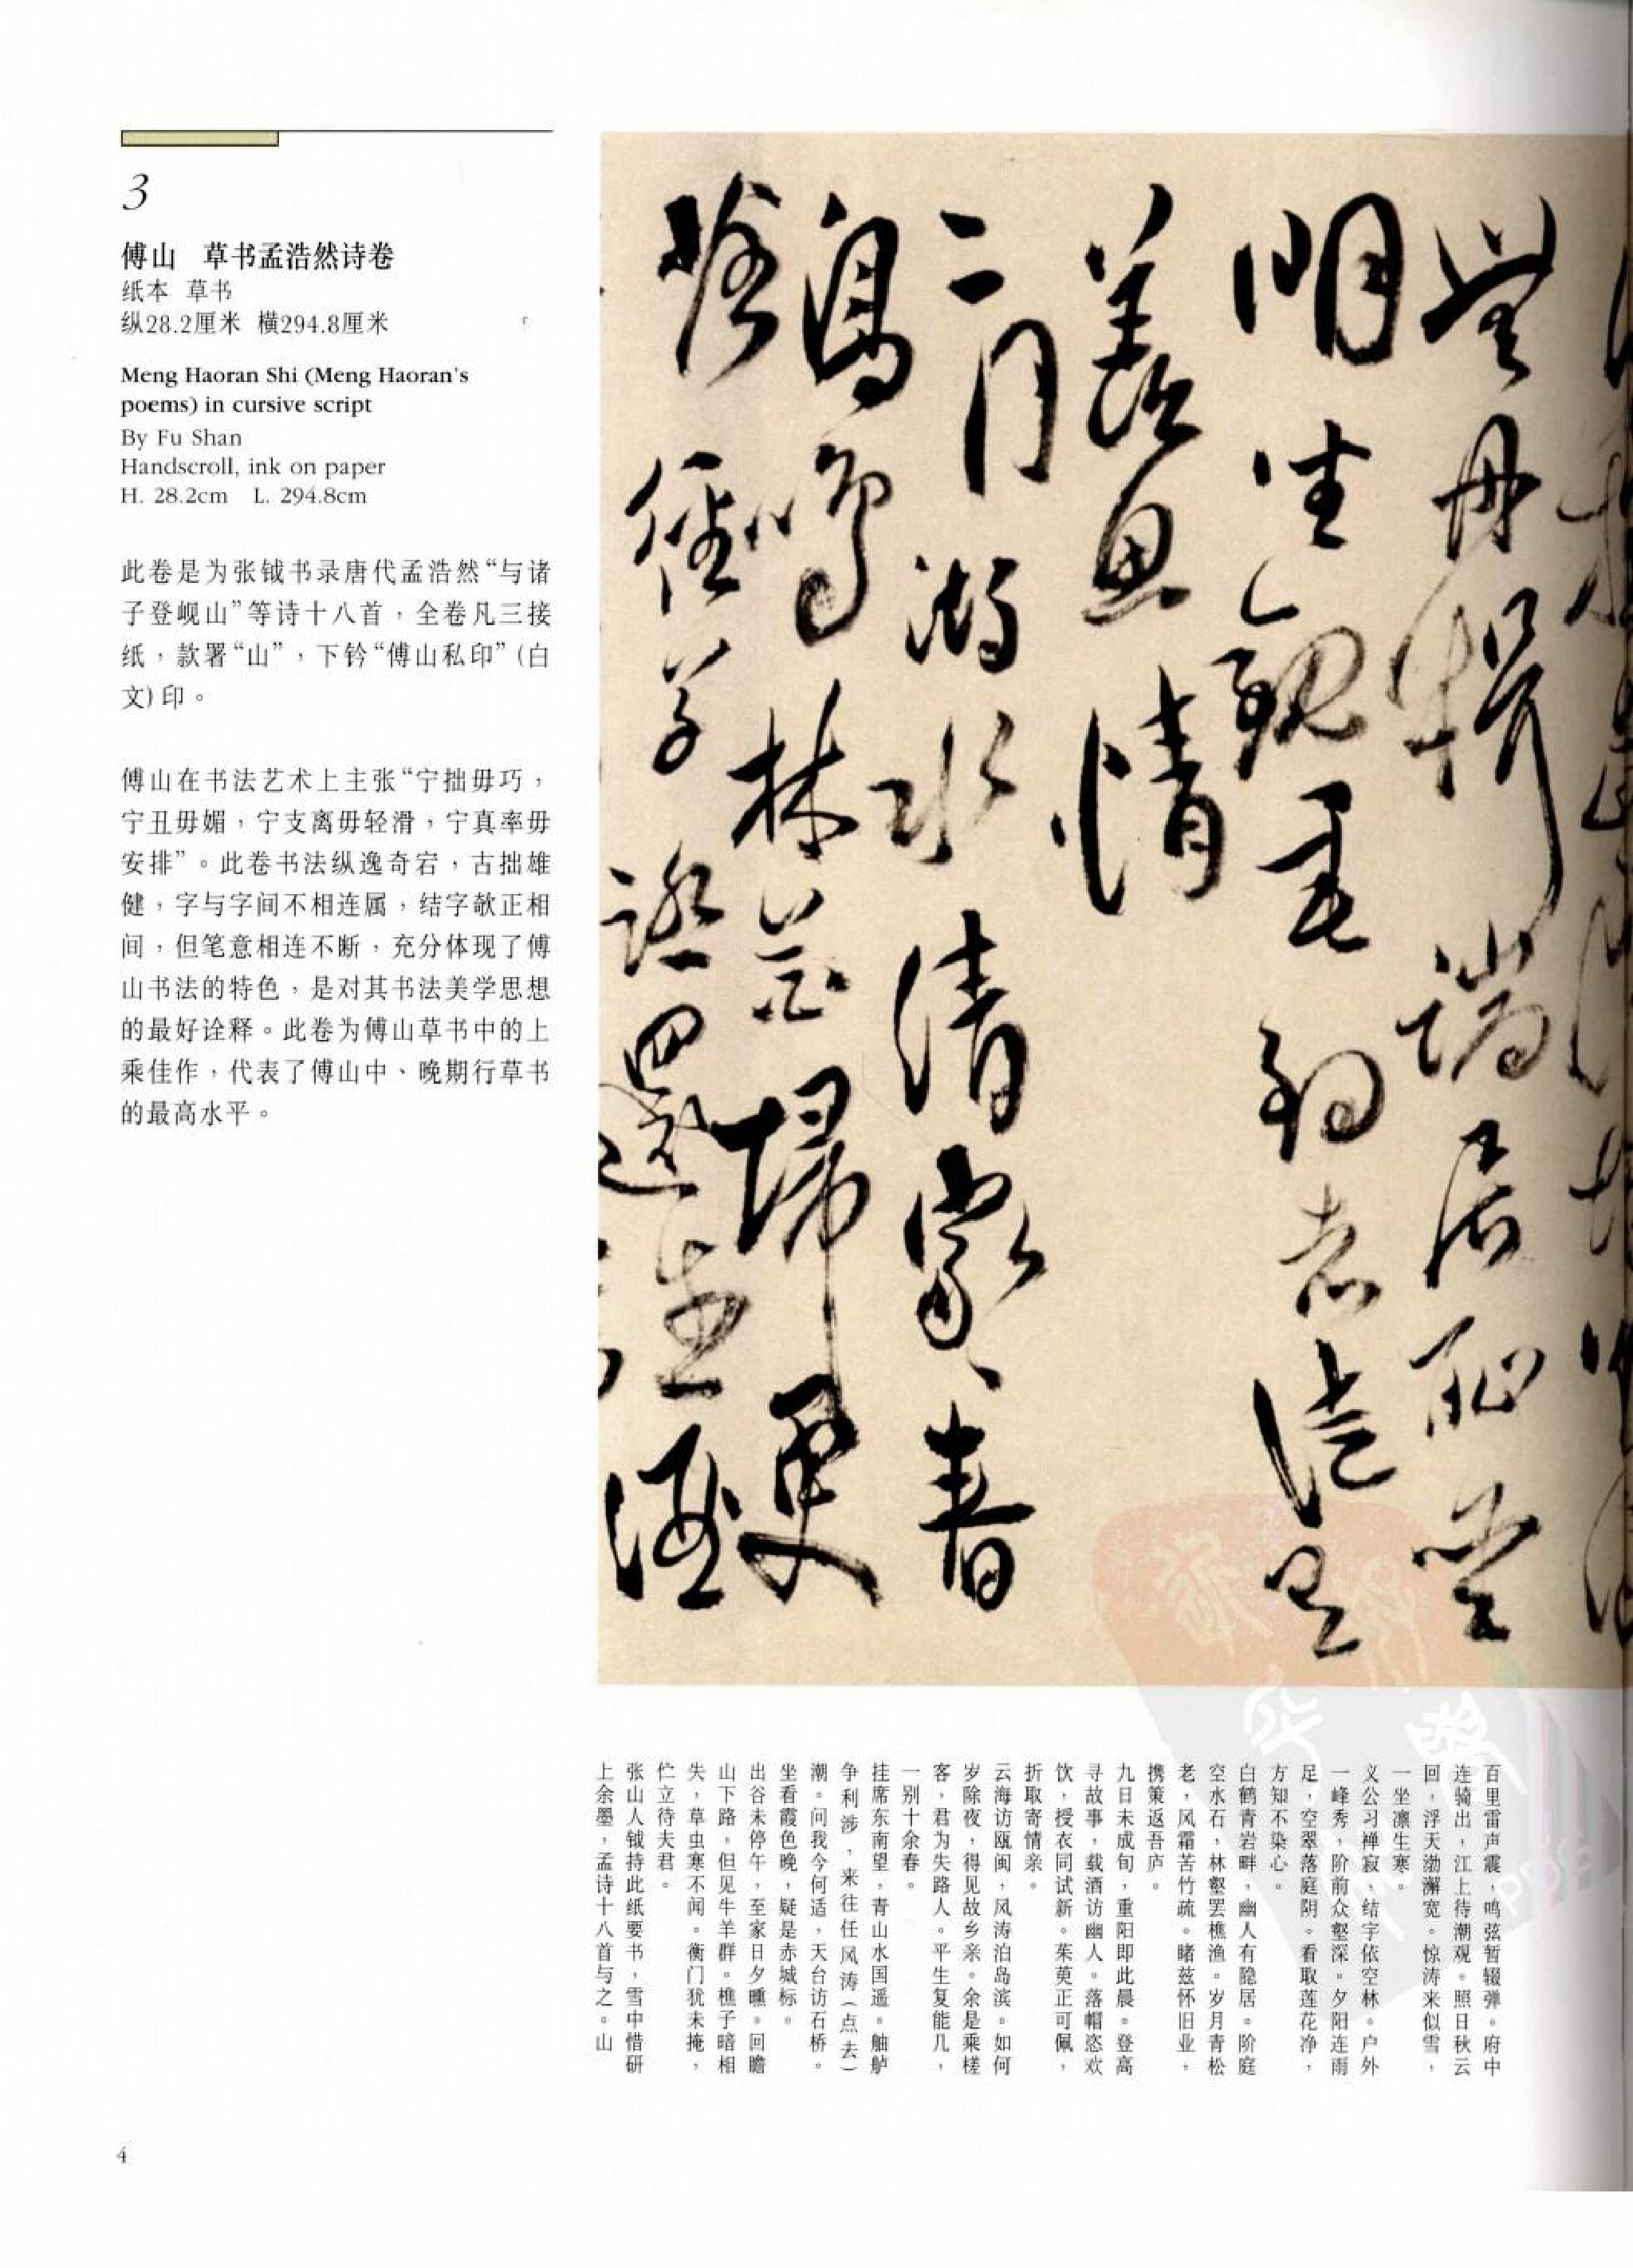 3
傅山 草书孟浩然诗卷
纸本 草书
纵28.2厘米 横294.8厘米
Meng Haoran Shi (Meng Haoran's
poems) in cursive script
By Fu Shan
Handscroll, ink on paper
H. 28.2cm L. 294.8cm
此卷是为张钺书录唐代孟浩然“与诸
子登岘山”等诗十八首，全卷凡三接
纸，款署“山”，下钤“傅山私印”（白
文）印。
傅山在书法艺术上主张“宁拙毋巧，
宁丑毋媚，宁支离毋轻滑，宁真率毋
安排”。此卷书法纵逸奇宕，古拙雄
健，字与字间不相连属，结字欹正相
间，但笔意相连不断，充分体现了傅
山书法的特色，是对其书法美学思想
的最好诠释。此卷为傅山草书中的上
乘佳作，代表了傅山中、晚期行草书
的最高水平。
無舟楫端居耻聖
明坐觀垂釣者徒
羨魚情
二月湖水清家〻春
鳥鳴林花掃更
落徑草還生酒
百里雷声震，鸣弦暂辍弹。府中
连骑出，江上待潮观。照日秋云
回，浮天渤澥宽。惊涛来似雪，
一坐凛生寒。
义公习禅寂，结宇依空林。户外
一峰秀，阶前众壑深。夕阳连雨
足，空翠落庭阴。看取莲花净，
方知不染心。
白鹤青岩畔，幽人有隐居。阶庭
空水石，林壑罢樵渔。岁月青松
老，风霜苦竹疏。睹兹怀旧业，
携策返吾庐。
九日未成旬，重阳即此晨。登高
寻故事，载酒访幽人。落帽恣欢
饮，授衣同试新。茱萸正可佩，
折取寄情亲。
云海访瓯闽，风涛泊岛滨。如何
岁除夜，得见故乡亲。余是乘槎
客，君为失路人。平生复能几，
一别十余春。
挂席东南望，青山水国遥。舳舻
争利涉，来往任风涛（点去）
潮。问我今何适，天台访石桥。
坐看霞色晚，疑是赤城标。
出谷未停午，至家日夕曛。回瞻
山下路，但见牛羊群。樵子暗相
失，草虫寒不闻。衡门犹未掩，
伫立待夫君。
张山人钺持此纸要书，雪中惜研
上余墨，孟诗十八首与之。山
4